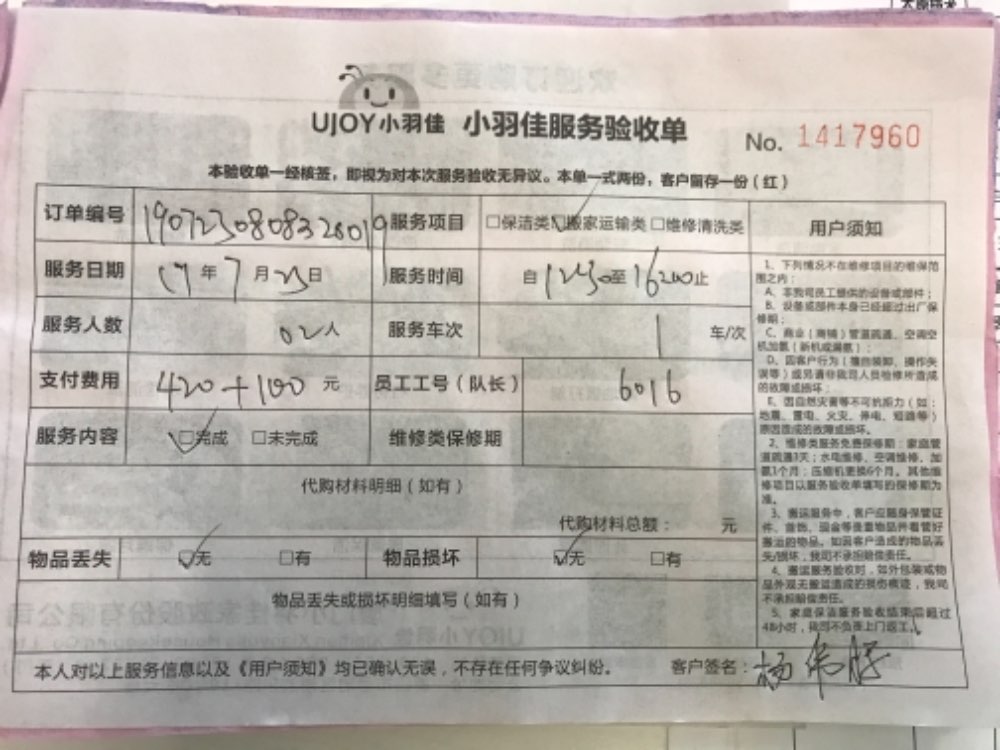 UJOY小羽佳 小羽佳服务验收单
No. 1417960
本验收单一经核签，即视为对本次服务验收无异议。本单一式两份，客户留存一份（红）
订单编号 1907230808328019 服务项目 □保洁类 ☑搬家运输类 □维修清洗类 用户须知
服务日期 19年7月23日 服务时间 自1230至1620止
服务人数 02人 服务车次 1 车/次
支付费用 420+100 元 员工工号（队长） 6016
服务内容 ☑完成 □未完成 维修类保修期
代购材料明细（如有）
代购材料总额： 元
物品丢失 ☑无 □有 物品损坏 ☑无 □有
物品丢失或损坏明细填写（如有）
1、下列情况不在维修项目的维保范
围之内：
A、非我司员工提供的设备或部件；
B、设备或部件本身已经超过出厂保
修期；
C、商业（商铺）管道疏通、空调空
机加氨（新机或漏氨）；
D、因客户行为（擅自装卸、操作失
误等）或另请非我司人员验修所造成
的故障或损坏；
E、因自然灾害等不可抗能力（如：
地震、雷电、火灾、停电、短路等）
原因造成的故障或损坏。
2、维修类服务免费保修期：家庭管
道疏通3天；水电维修、空调维修、加
氨1个月；压缩机更换6个月。其他维
修项目以服务验收单填写的保修期为
准。
3、搬运服务中，客户应随身保管证
件、首饰、现金等贵重物品并看管好
搬运的物品。如因客户造成的物品丢
失/损坏，我司不承担赔偿责任。
4、搬运服务验收时，如外包装或物
品外观无搬运造成的损伤痕迹，我司
不承担赔偿责任。
5、家庭保洁服务验收结束后超过
48小时，我司不负责上门返工。
本人对以上服务信息以及《用户须知》均已确认无误，不存在任何争议纠纷。 客户签名：杨伟胜